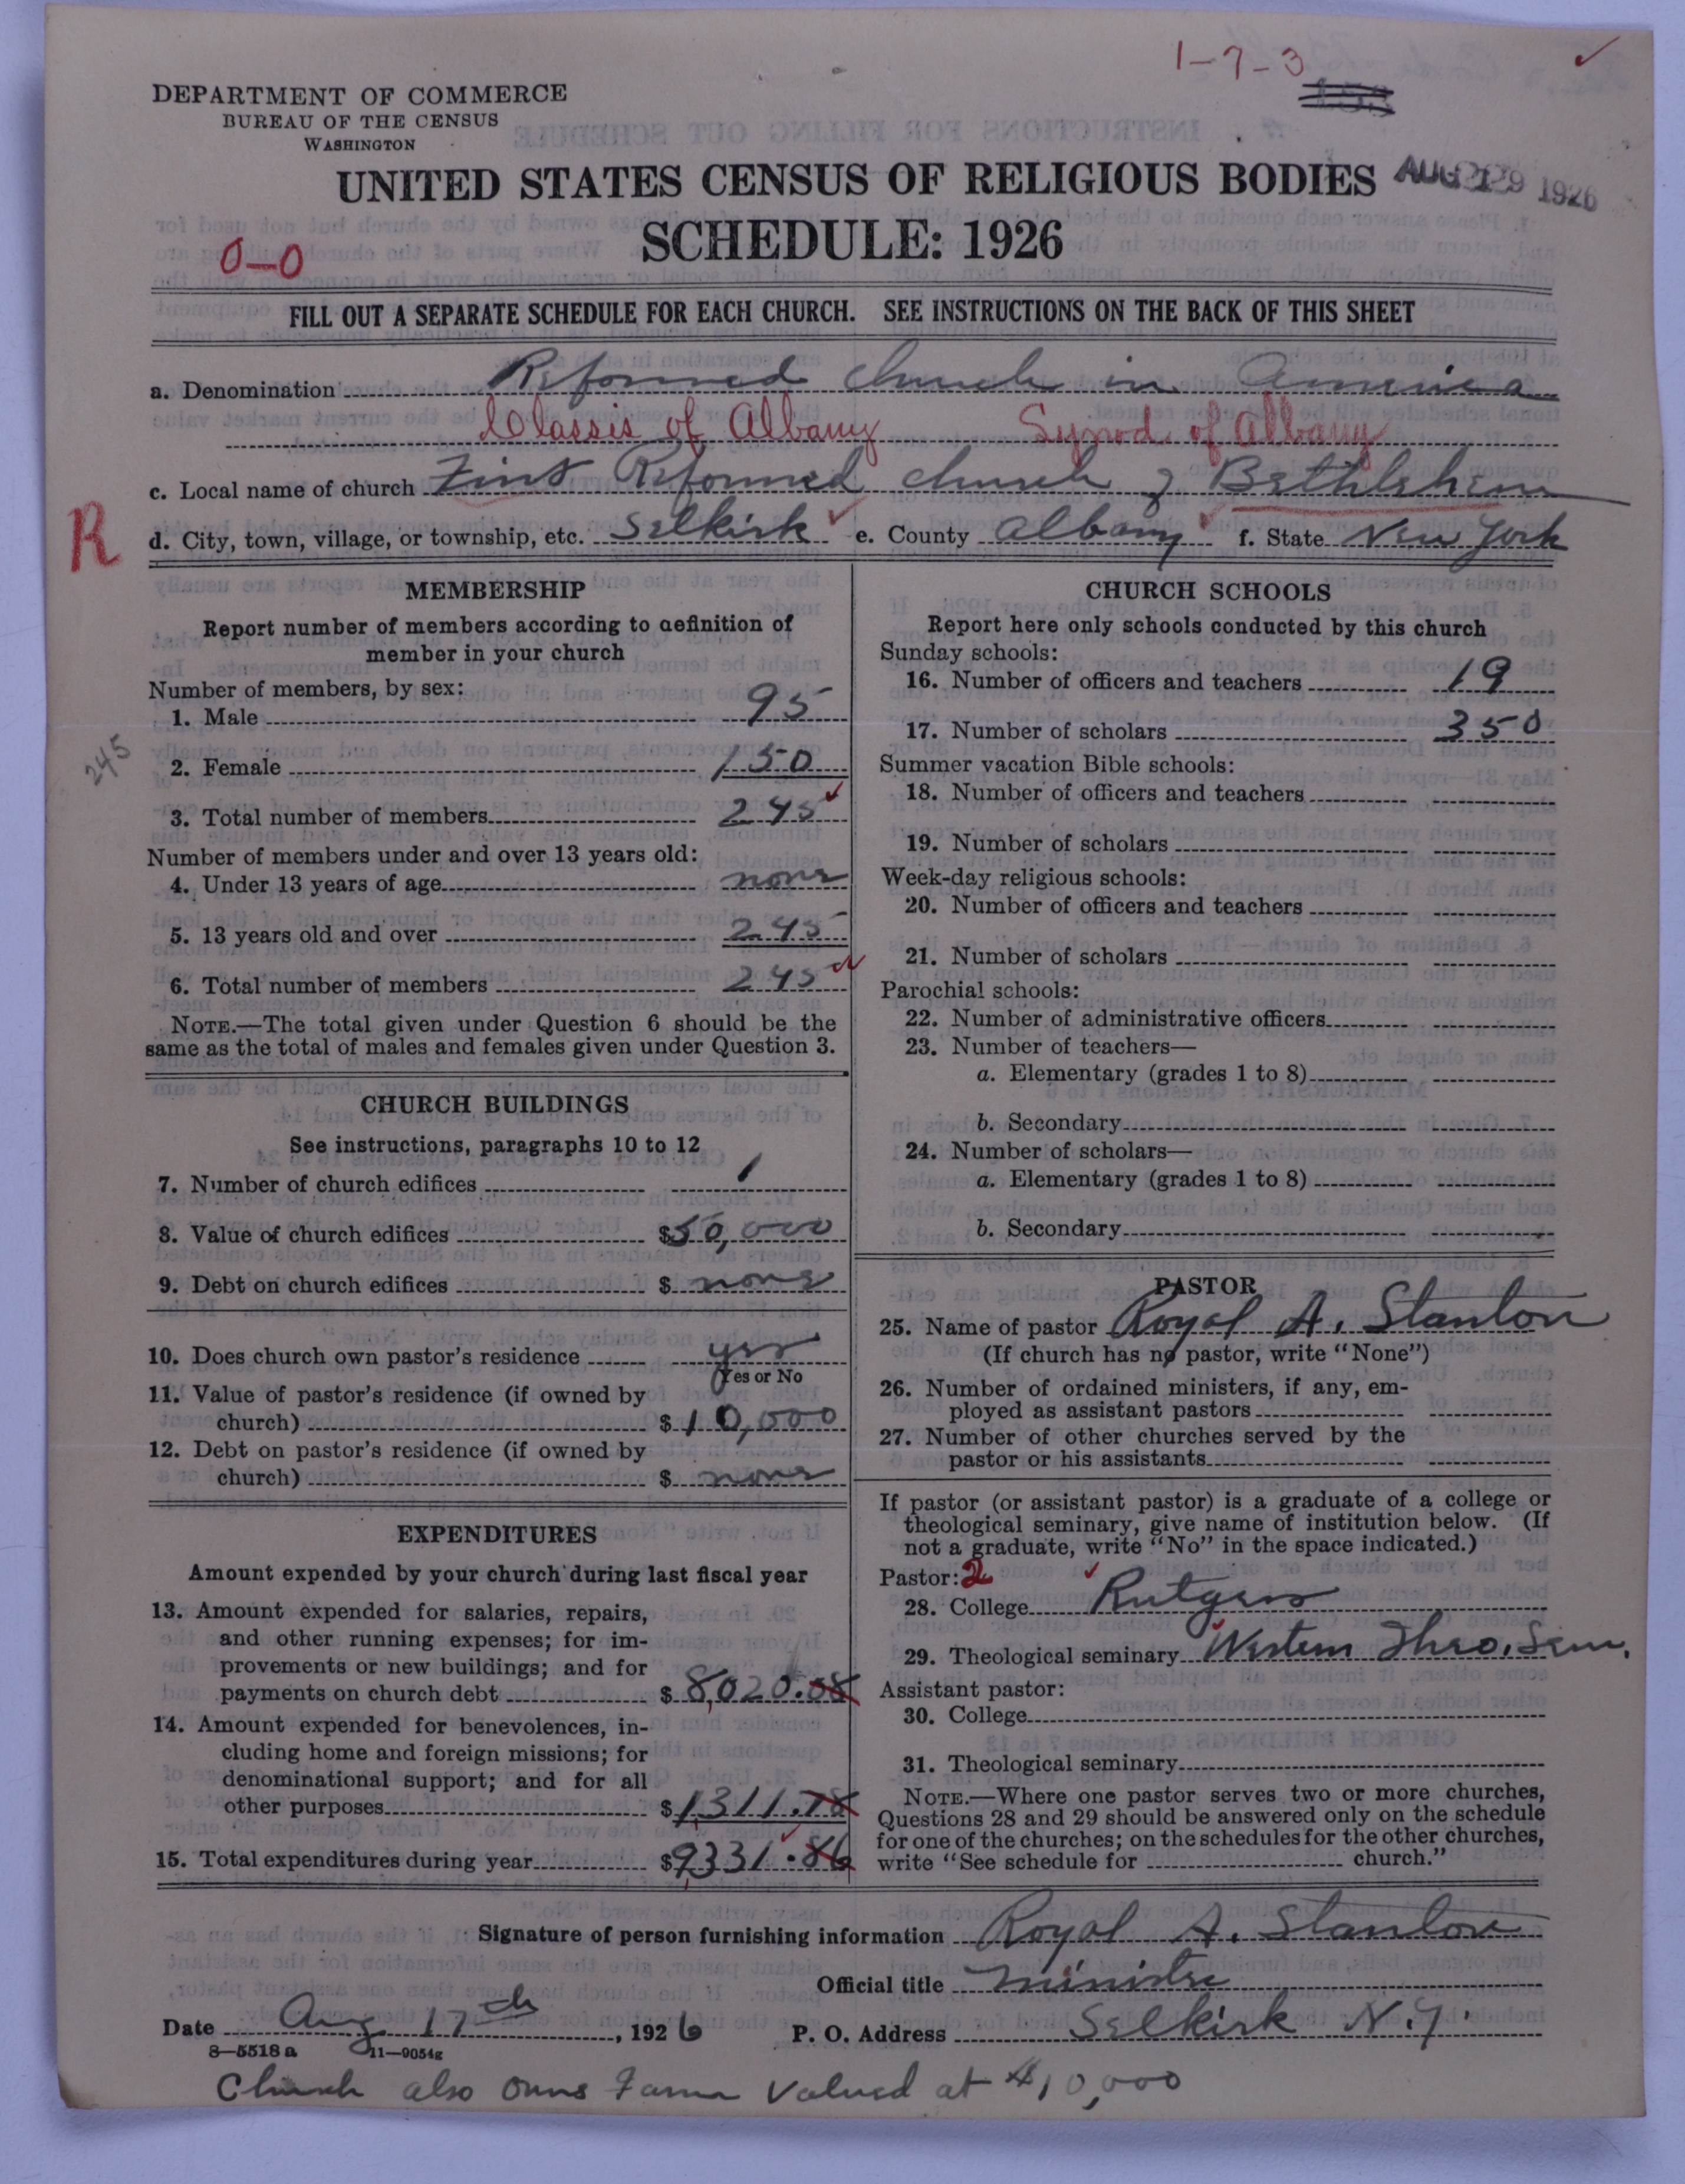 1-7-3
DEPARTMENT OF COMMERCE
BUREAU OF THE CENSUS
WASHINGTON
UNITED STATES CENSUS OF RELIGIOUS BODIES
AUG 1926
SCHEDULE: 1926
0-0
FILL OUT A SEPARATE SCHEDULE FOR EACH CHURCH. SEE INSTRUCTIONS ON THE BACK OF THIS SHEET
a. Denomination Reformed Church in America
Classis of Albany Synod of Albany
c. Local name of church First Reformed Church of Bethlehem
R
d. City, town, village, or township, etc. Selkirk e. County Albany f. State New York
MEMBERSHIP
Report number of members according to definition of
member in your church
Number of members, by sex:
1. Male 95
2. Female 150
245
3. Total number of members 245
Number of members under and over 13 years old:
4. Under 13 years of age none
5. 13 years old and over 245
6. Total number of members 245
NOTE.—The total given under Question 6 should be the
same as the total of males and females given under Question 3.
CHURCH BUILDINGS
See instructions, paragraphs 10 to 12
7. Number of church edifices 1
8. Value of church edifices $50,000
9. Debt on church edifices $ none
10. Does church own pastor's residence yes
Yes or No
11. Value of pastor's residence (if owned by
church) $10,000
12. Debt on pastor's residence (if owned by
church) $ none
EXPENDITURES
Amount expended by your church during last fiscal year
13. Amount expended for salaries, repairs,
and other running expenses; for im-
provements or new buildings; and for
payments on church debt $8,020.08
14. Amount expended for benevolences, in-
cluding home and foreign missions; for
denominational support; and for all
other purposes $1,311.78
15. Total expenditures during year $9,331.86
CHURCH SCHOOLS
Report here only schools conducted by this church
Sunday schools:
16. Number of officers and teachers 19
17. Number of scholars 350
Summer vacation Bible schools:
18. Number of officers and teachers
19. Number of scholars
Week-day religious schools:
20. Number of officers and teachers
21. Number of scholars
Parochial schools:
22. Number of administrative officers
23. Number of teachers—
a. Elementary (grades 1 to 8)
b. Secondary
24. Number of scholars—
a. Elementary (grades 1 to 8)
b. Secondary
PASTOR
25. Name of pastor Royal A. Stanton
(If church has no pastor, write "None")
26. Number of ordained ministers, if any, em-
ployed as assistant pastors
27. Number of other churches served by the
pastor or his assistants
If pastor (or assistant pastor) is a graduate of a college or
theological seminary, give name of institution below. (If
not a graduate, write "No" in the space indicated.)
Pastor: 2
28. College Rutgers
29. Theological seminary Western Theo. Sem.
Assistant pastor:
30. College
31. Theological seminary
NOTE.—Where one pastor serves two or more churches,
Questions 28 and 29 should be answered only on the schedule
for one of the churches; on the schedules for the other churches,
write "See schedule for church."
Signature of person furnishing information Royal A. Stanton
Official title Minister
Date Aug 17th, 1926 P. O. Address Selkirk N.Y.
8—5518a 11—9054g
Church also owns Farm valued at $10,000